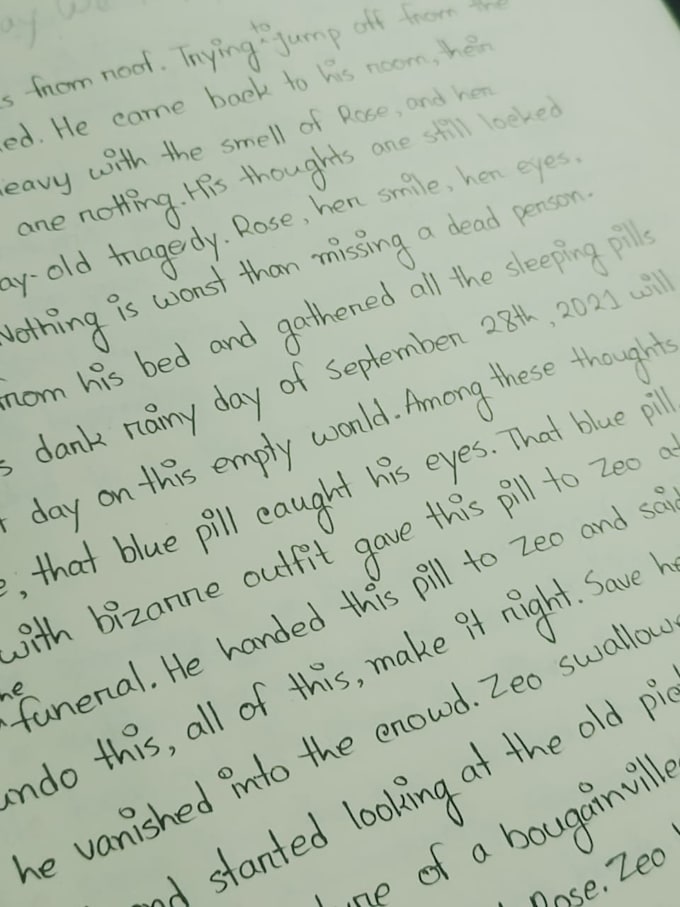 ay
s from roof. Trying to jump off from the
ed. He came back to his room, their
eavy with the smell of Rose, and her
are notting. His thoughts are still locked
ay-old tragedy. Rose, her smile, her eyes.
Nothing is worst than missing a dead person.
rom his bed and gathered all the sleeping pills
s dark rainy day of September 28th, 2021 will
t day on this empty world. Among these thoughts
e, that blue pill caught his eyes. That blue pill.
with bizarre outfit gave this pill to Zeo at
he funeral. He handed this pill to Zeo and said
undo this, all of this, make it right. Save he
he vanished into the crowd. Zeo swallow
nd started looking at the old pic
ure of a bougainville
Rose. Zeo